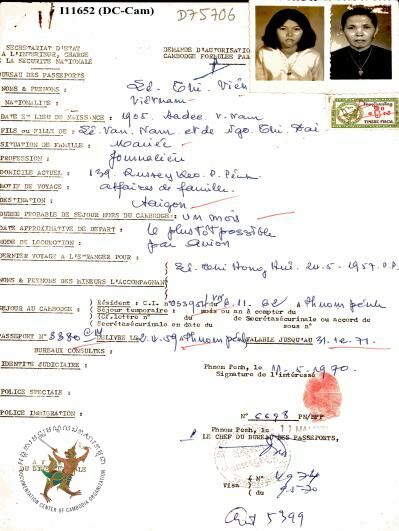 I11652 (DC-Cam)
D75706
SECRETARIAT D'ETAT
A L'INTERIEUR, CHARGE
LA SECURITE NATIONALE
DEMANDE D'AUTORISATION
CAMBODGE FORMULEE PAR
BUREAU DES PASSEPORTS
NOMS & PRENOMS : Lê. Thi. Viên
NATIONALITE : Vietnam
DATE ET LIEU DE NAISSANCE : 1905. Sadec. V. Nam
FILS ou FILLE DE : Lê. Van. Nam et de Ngo. Thi. Dai
SITUATION DE FAMILLE : Mariée
PROFESSION : Journalier
DOMICILE ACTUEL : 139. Russey Keo. P. Penh
MOTIF DE VOYAGE : affaires de famille
DESTINATION : Saigon
DUREE PROBABLE DE SEJOUR HORS DU CAMBODGE : un mois
DATE APPROXIMATIVE DE DEPART : le plus tôt possible
MODE DE LOCOMOTION : par avion
DERNIER VOYAGE A L'ETRANGER POUR :
NOMS & PRENOMS DES MINEURS L'ACCOMPAGNANT
1957. P.P
SEJOUR AU CAMBODGE : Résident : C.I. n° du 8.11.62 à Phnom penh
Séjour temporaire : mois ou an à compter du
(Cf. lettre n° du de Secrétariat ou accord de
Secrétariat en date du sous n°
PASSEPORT N° 3380 DELIVRE LE 2.4.59 à Phnom penh VALABLE JUSQU'AU 31.12.71
BUREAUX CONSULTES :
IDENTITE JUDICIAIRE :
Phnom Penh, le 11.5.1970
Signature de l'intéressé
POLICE SPECIALE :
POLICE IMMIGRATION :
N° 6698 PN/BPP
Phnom Penh, le 11 MAI
LE CHEF DU BUREAU DES PASSEPORTS,
Visa ( N° 4974
( du
5399
DOCUMENTATION CENTER OF CAMBODIA ORGANIZATION
TIMBRE FISCAL